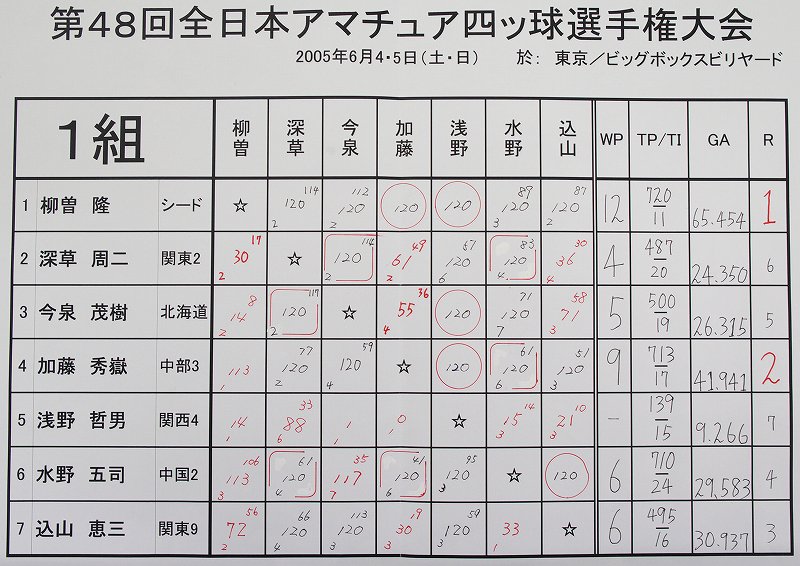 第48回全日本アマチュア四ッ球選手権大会
2005年6月4・5日(土・日) 於: 東京／ビッグボックスビリヤード
1組 柳曽 深草 今泉 加藤 浅野 水野 込山 WP TP/TI GA R
1 柳曽 隆 シード ☆ 120 114 2 120 112 2 120 120 120 89 3 120 87 2 12 720/11 65.454 1
2 深草 周二 関東2 30 17 2 ☆ 120 114 2 61 49 2 120 67 6 120 83 4 36 30 4 4 487/20 24.350 6
3 今泉 茂樹 北海道 14 8 2 120 117 2 ☆ 55 36 4 120 120 71 7 71 58 3 5 500/19 26.315 5
4 加藤 秀嶽 中部3 113 1 120 77 2 120 59 4 ☆ 120 120 61 6 120 51 3 9 713/17 41.941 2
5 浅野 哲男 関西4 14 1 88 33 6 1 1 0 1 ☆ 15 14 3 21 10 3 - 139/15 9.266 7
6 水野 五司 中国2 113 106 3 120 61 4 117 35 7 120 41 6 120 95 3 ☆ 120 6 710/24 29.583 4
7 込山 恵三 関東9 72 56 2 120 66 4 120 113 3 30 19 3 120 59 3 33 1 ☆ 6 495/16 30.937 3